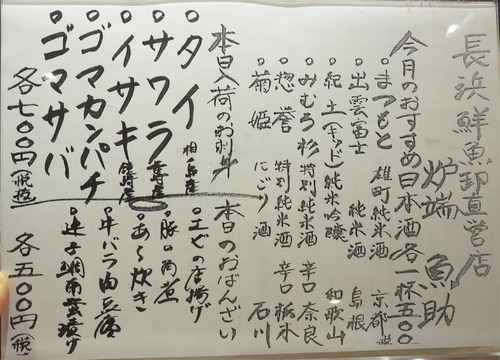 長浜鮮魚卸直営店
炉端 魚助
今月のおすすめ日本酒各一杯五〇〇 税
まつもと 雄町純米酒 京都
出雲富士 純米酒 島根
紀土(キッド)純米吟醸 和歌山
みむろ杉 特別純米酒 辛口 奈良
惣誉 特別純米酒 辛口 栃木
菊姫 にごり酒 石川
本日入荷のお刺身
タイ 相ノ島産
サワラ
イサキ
ゴマカンパチ
ゴマサバ
各七〇〇円(税抜)
本日のおばんざい
エビの唐揚げ
豚の角煮
あら炊き
牛バラ肉豆腐
連子鯛南蛮漬け
各五〇〇円(税抜)